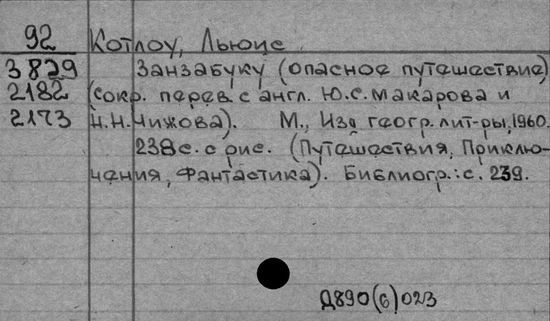 92 Котлоу, Льюис
3829 Занзабуку (опасное путешествие)
2182 (сокр. перев. с англ. Ю.С. Макарова и
2173 Н.Н. Чижова). М., Изд. геогр. лит-ры, 1960.
238 с. с рис. (Путешествия, Приклю-
чения, Фантастика). Библиогр.: с. 239.
Д890(6)023